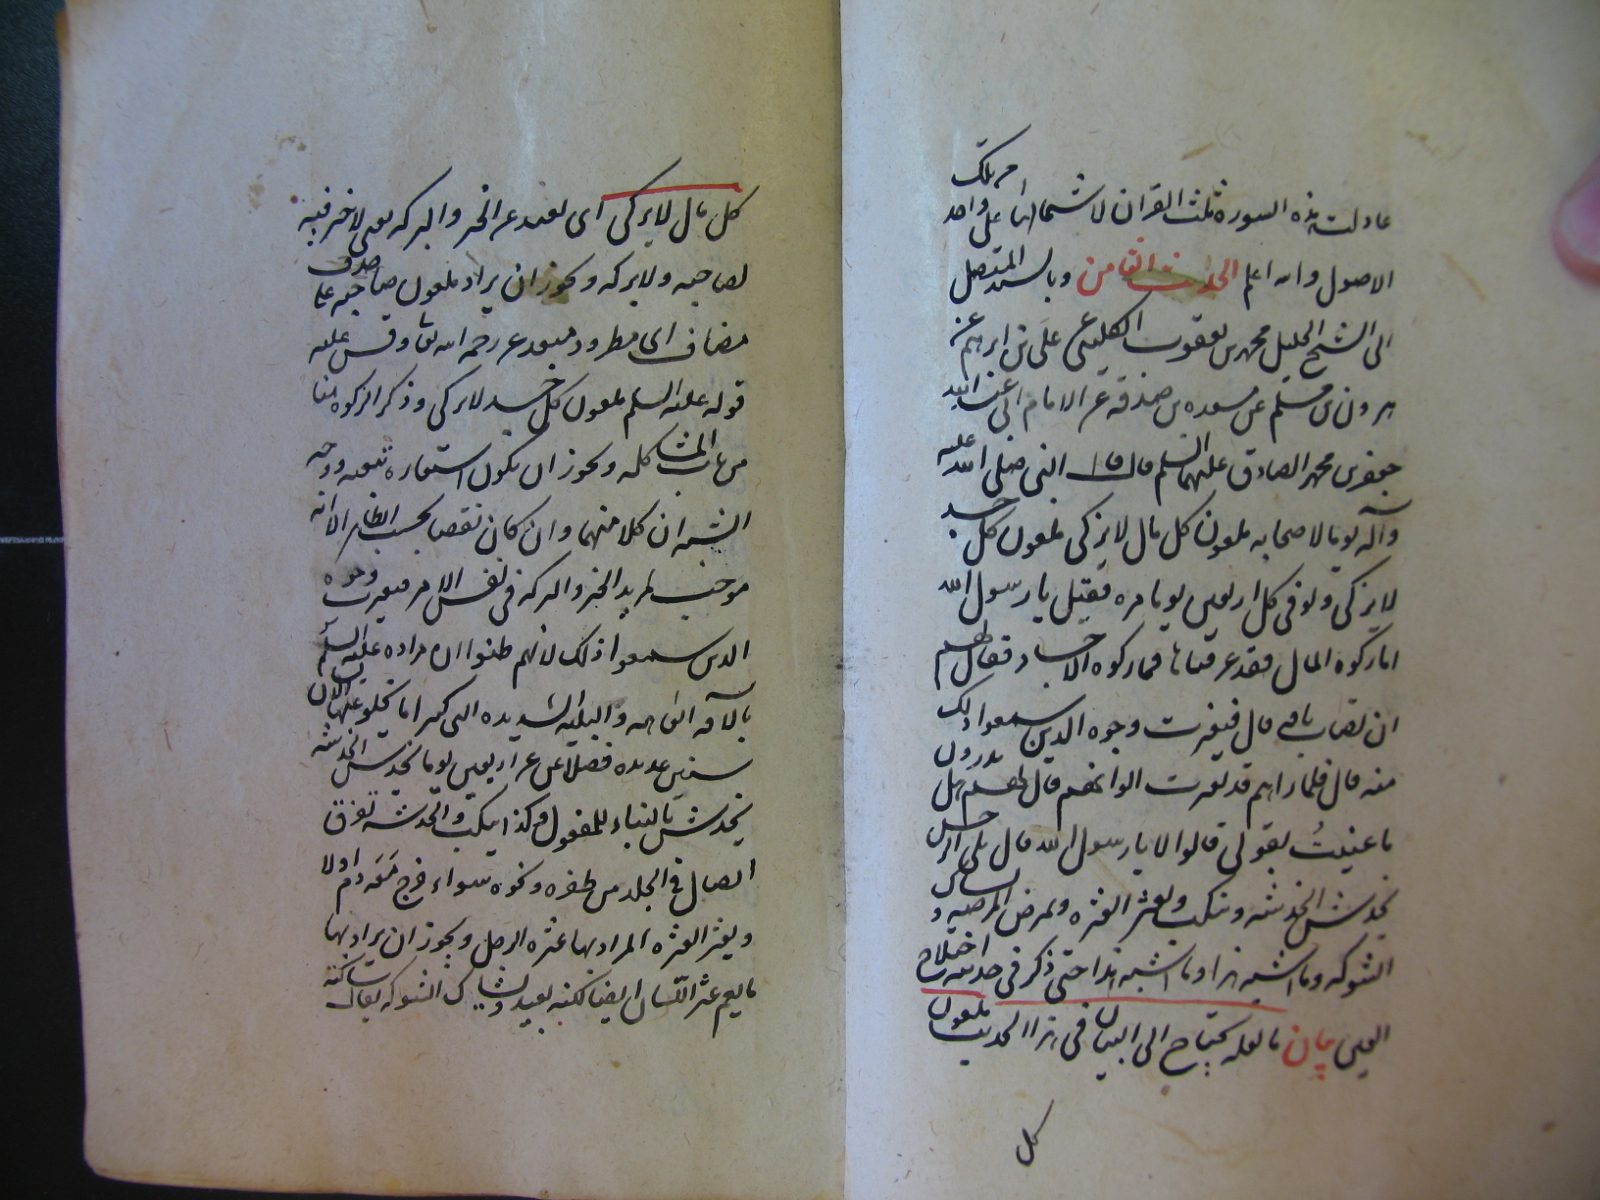 عادلت هذه السورة ثلث القرآن لاشتمالها على واحد من تلك
الاصول والله اعلم الحديث الثامن وبالسند المتصل
الى الشيخ الجليل محمد بن يعقوب الكليني عن علي بن ابرهيم عن
هرون بن مسلم عن مسعدة بن صدقة عن الامام ابي عبد الله
جعفر بن محمد الصادق عليهما السلم قال قال النبي صلى الله عليه
وآله يوما لاصحابه ملعون كل مال لا يزكى ملعون كل جسد
لا يزكى ولو في كل اربعين يوما مرة فقيل يا رسول الله
اما زكوة المال فقد عرفناها فما زكوة الاجساد فقال لهم
ان تصاب بآفة قال فتغيرت وجوه الذين سمعوا ذلك
منه قال فلما رآهم قد تغيرت الوانهم قال لهم هل تدرون
ما عنيت بقولي قالوا لا يا رسول الله قال بلى الرجل
يخدش الخدشة وينكب النكبة ويعثر العثرة ويمرض المرضة ويشاك
الشوكة وما اشبه هذا حتى ذكر في حديثه اختلاج
العين بيان ما لعله يحتاج الى البيان في هذا الحديث ملعون
كل
كل مال لا يزكى اى بعيد عن الخير والبركة يعنى لا خير فيه
لصاحبه ولا بركة ويجوز ان يراد ملعون صاحبه على حذف
مضاف اى مطرود مبعد عن رحمة الله تعالى وقس عليه
قوله عليه السلم ملعون كل جسد لا يزكى وذكر الزكوة هنا
من باب المشاكلة ويجوز ان يكون استعارة تبعية ووجه
الشبه ان كلا منهما وان كان نقصا بحسب الظاهر الا انه
موجب لمزيد الخير والبركة في نفس الامر فتغيرت وجوه
الذين سمعوا ذلك لانهم ظنوا ان مراده عليه السلم
بالآفة العاهة والبلية الشديدة التي كثيرا ما يخلو عنها الانسان
سنين عديدة فضلا عن اربعين يوما يخدش الخدشة
يخدش بالبناء للمفعول وكذا ينكب والخدشة تفرق
اتصال في الجلد من ظفر ونحوه سواء خرج معه دم او لا
ويعثر العثرة المراد بها عثرة الرجل ويجوز ان يراد بها
ما يعم عثرة اللسان ايضا لكنه بعيد ويشاك الشوكة يقال شاكته